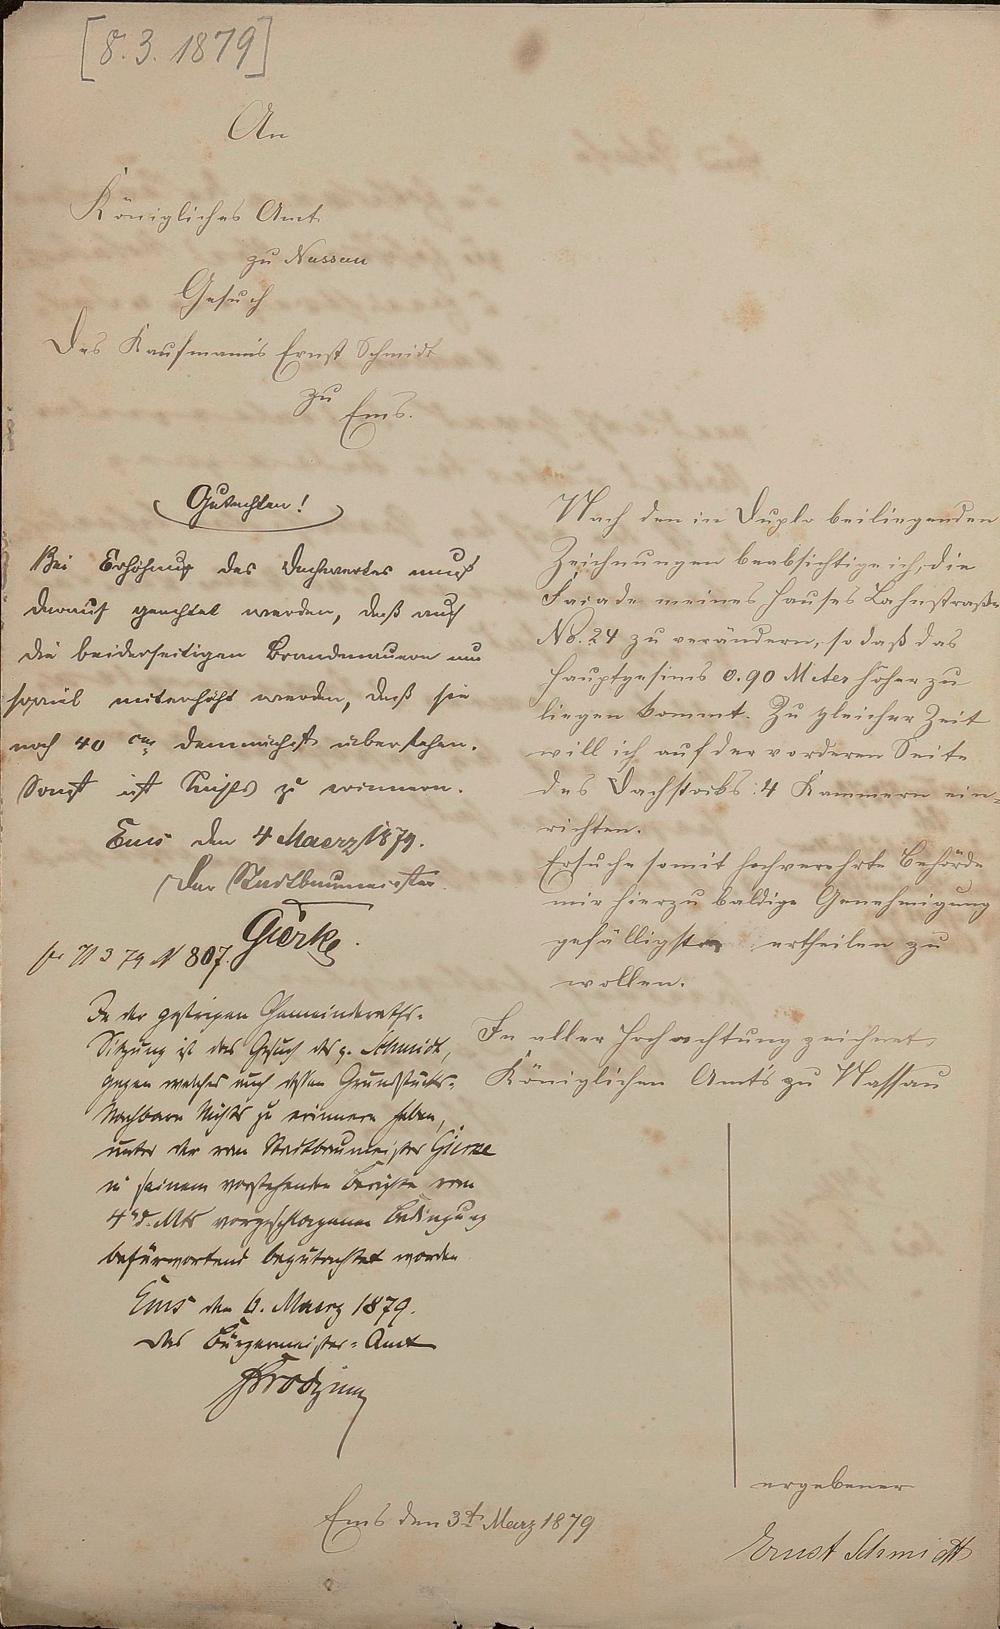 [8. 3. 1879]
An
Königliches Amt
zu Nassau
Gesuch
Des Kaufmann's Ernst Schmidt
zu Ems.
Nach den in Duplo beiliegenden
Zeichnungen beabsichtige ich, die
Façade meines Hauses Lahnstraße
No. 24 zu verändern, so daß das
Hauptgesims 0.90 Meter höher zu
liegen kommt. Zu gleicher Zeit
will ich auf der vorderen Seite
des Dachstocks 4 Kammern ein-
richten.
Ersuche somit hochverehrte Behörde
mir hierzu baldige Genehmigung
gefälligst ertheilen zu
wollen.
In aller Hochachtung zeichnet
Königlichen Amt's zu Nassau
ergebener
Ernst Schmidt
Ems den 3t März 1879
Gutachten!
Bei Erhöhung des Dachwerkes muß
darauf geachtet werden, daß auch
die beiderseitigen Brandmauern um
soviel miterhöht werden, daß sie
noch 40 cm demnächst überstehen.
Sonst ist Nichts zu erinnern.
Ems den 4 Maerz 1879.
Der Stadtbaumeister
3 79 N 807.
In der gestrigen Gemeinderaths-
Sitzung ist das Gesuch des p. Schmidt,
gegen welches auch dessen Grundstücks-
Nachbarn Nichts zu erinnern haben,
unter der von Stadtbaumeister
in seinem vorstehenden Berichte vom
4t d. Mts vorgeschlagenen Bedingung
befürwortend begutachtet worden
Ems den 6. Maerz 1879.
Das Bürgermeister-Amt